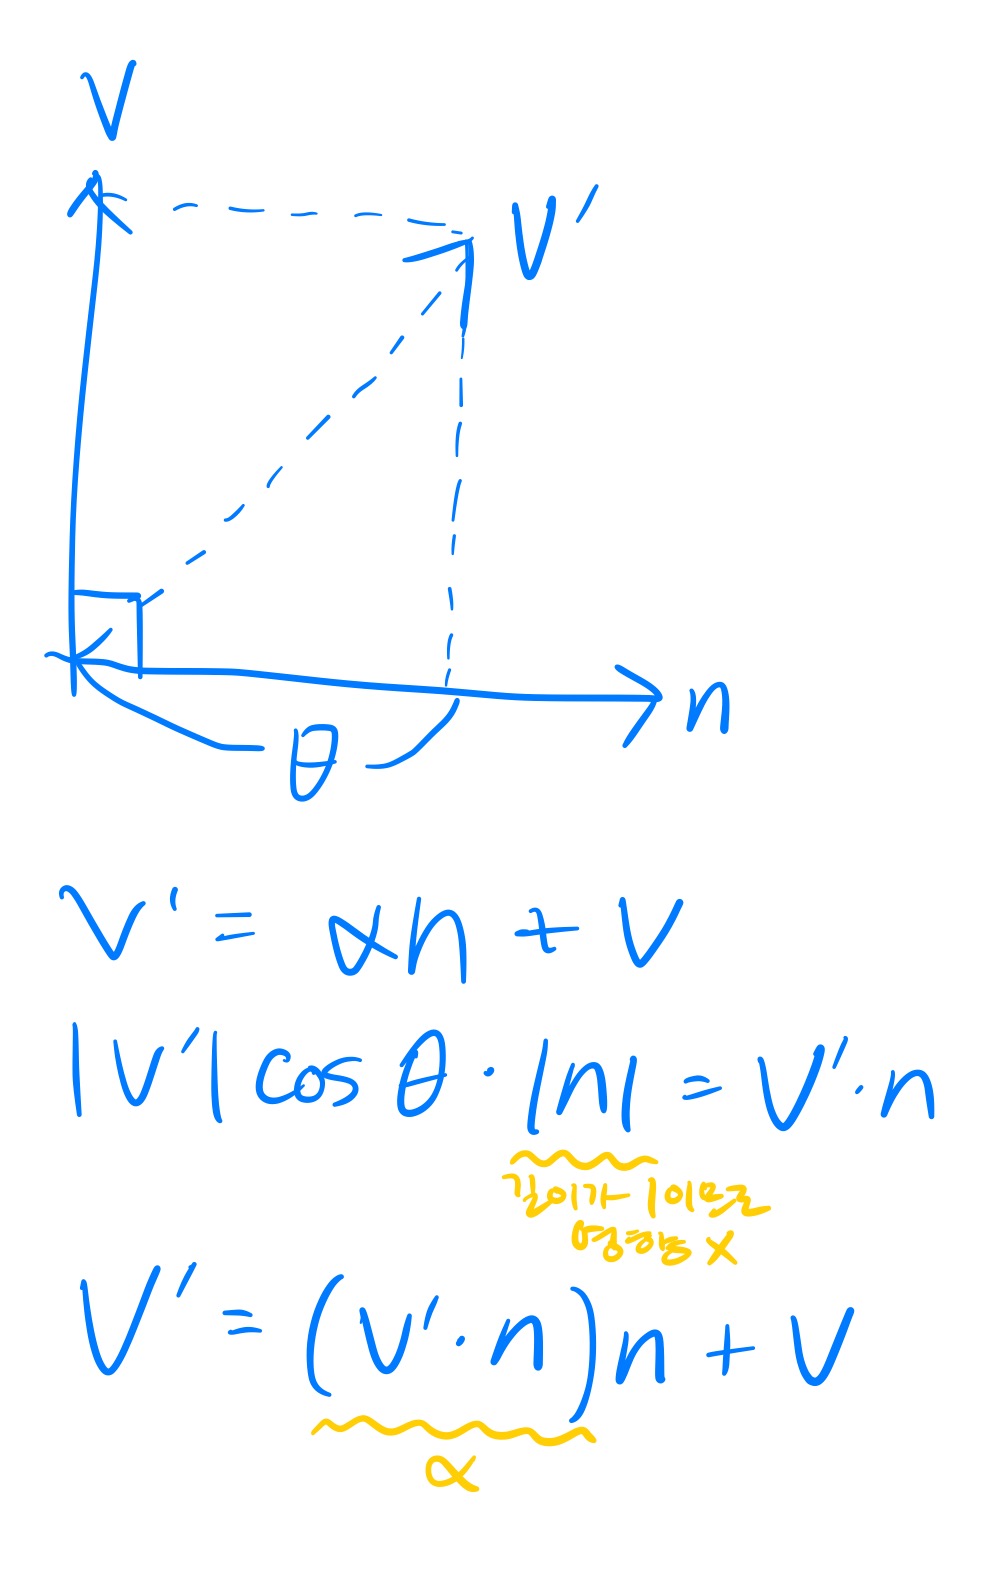 V
V'
n
θ
V' = αn + V
|V'| cos θ · |n| = V' · n
길이가 1이므로
영향 X
V' = (V' · n)n + V
α